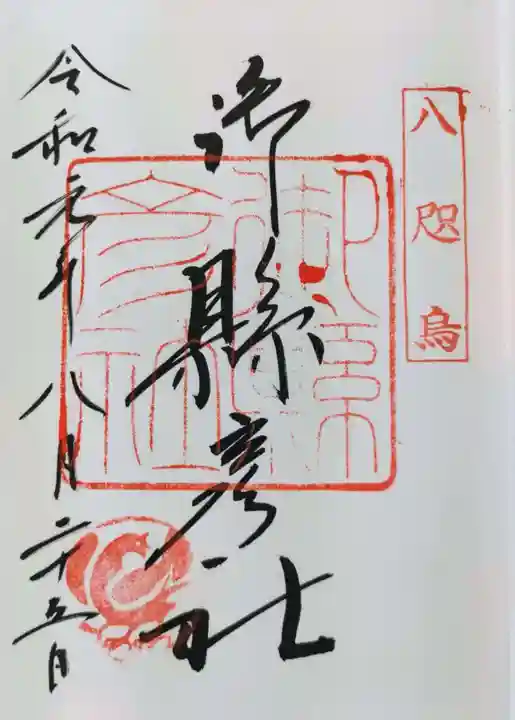 八咫烏
御縣彦社
令和元年八月二十五日